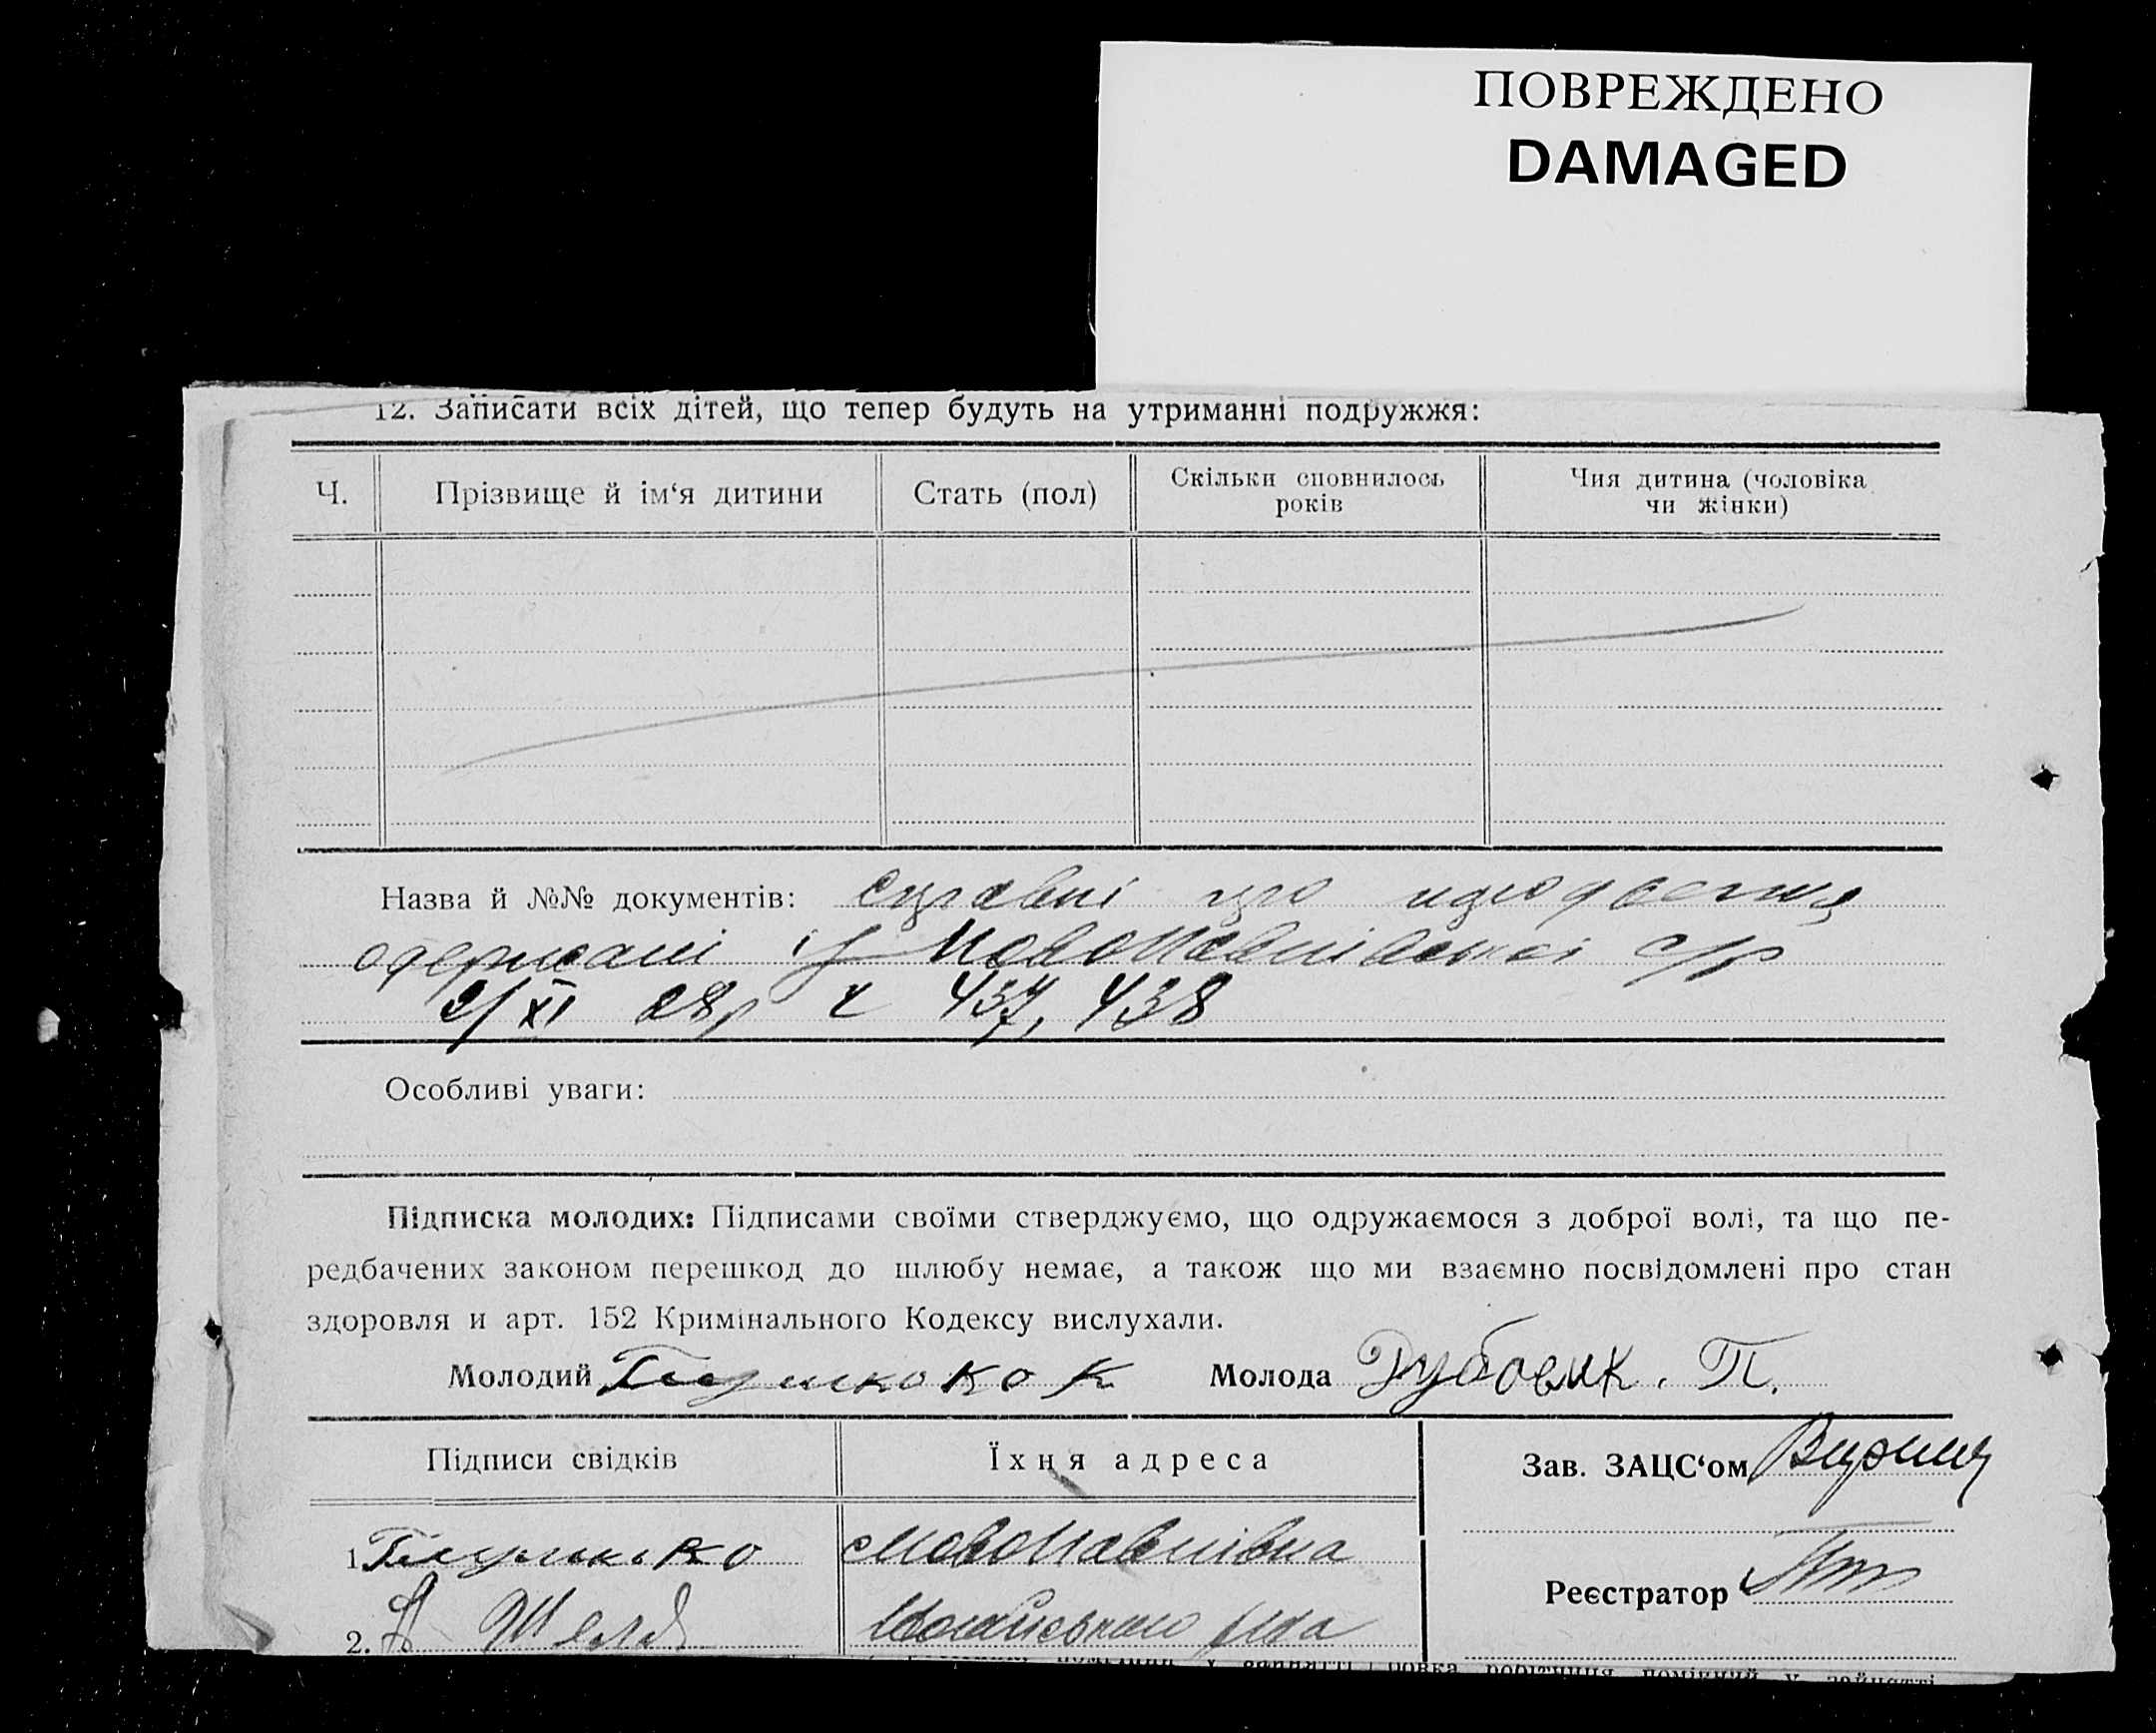 ПОВРЕЖДЕНО
DAMAGED
12. Записати всіх дітей, що тепер будуть на утриманні подружжя:
Ч. Прізвище й ім‘я дитини Стать (пол) Скільки сповнилось років Чия дитина (чоловіка чи жінки)
Назва й №№ документів: справкі про
одержані із НовоПавлівської с/р
2/XI 28р ч 437, 438
Особливі уваги:
Підписка молодих: Підписами своїми стверджуємо, що одружаємося з доброї волі, та що пе-
редбачених законом перешкод до шлюбу немає, а також що ми взаємно посвідомлені про стан
здоровля и арт. 152 Кримінального Кодексу вислухали.
Молодий К Молода Дубовик. П.
Підписи свідків Їхня адреса Зав. ЗАЦС‘ом
1. НовоПавлівка
2. Реєстратор